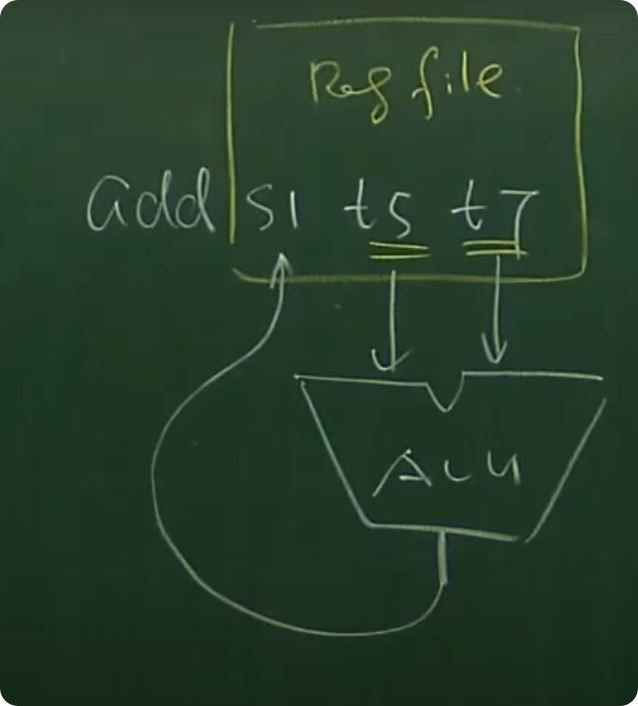 Reg file
add s1 t5 t7
ALU